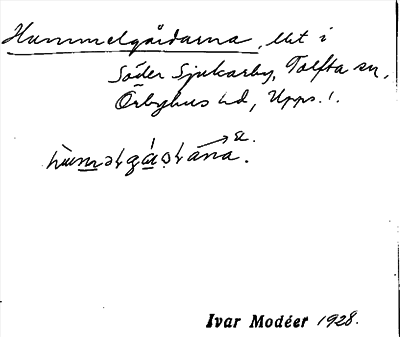 Hummelgårdarna, llht i
Söder Sjukarby, Tolfta sn,
Örbyhus hd, Upps. l.
Ivar Modéer 1928.